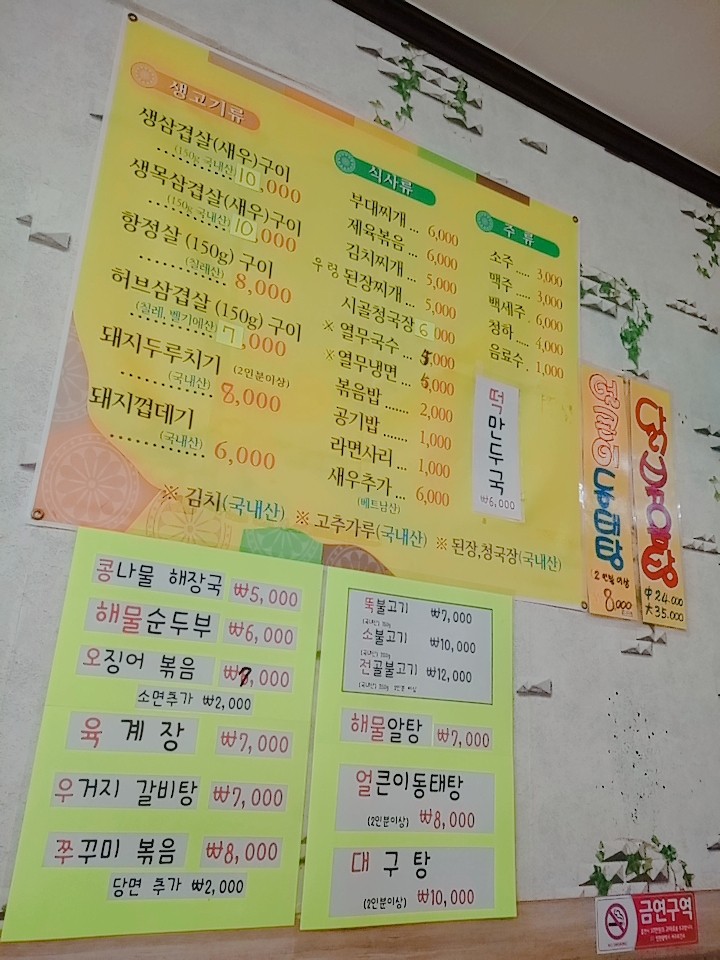 생고기류
생삼겹살(새우)구이
(150g 국내산) 10,000
생목삼겹살(새우)구이
(150g 국내산) 10,000
항정살 (150g) 구이
(칠레산) 8,000
허브삼겹살 (150g) 구이
(칠레, 벨기에산) 7,000
돼지두루치기 (2인분이상)
(국내산) 8,000
돼지껍데기
(국내산) 6,000
식사류
부대찌개 ... 6,000
제육볶음 ... 6,000
김치찌개 ... 5,000
우렁 된장찌개 ... 5,000
시골청국장 6,000
※ 열무국수 ... 5,000
※ 열무냉면 ... 6,000
볶음밥 ....... 2,000
공기밥 ....... 1,000
라면사리 ... 1,000
새우추가 ... 6,000
(베트남산)
주 류
소주 ..... 3,000
맥주 ..... 3,000
백세주 . 6,000
청하 ..... 4,000
음료수 . 1,000
떡만두국
₩6,000
※ 김치(국내산) ※ 고추가루(국내산) ※ 된장,청국장(국내산)
동태탕
2인분이상
8,000
中 24.000
大 35.000
콩나물 해장국 ₩5,000
해물순두부 ₩6,000
오징어 볶음 ₩7,000
소면추가 ₩2,000
육 계 장 ₩7,000
우거지 갈비탕 ₩7,000
쭈꾸미 볶음 ₩8,000
당면 추가 ₩2,000
뚝불고기 ₩7,000
소불고기 ₩10,000
전골불고기 ₩12,000
해물알탕 ₩7,000
얼큰이동태탕
(2인분이상) ₩8,000
대 구 탕
(2인분이상) ₩10,000
금연구역